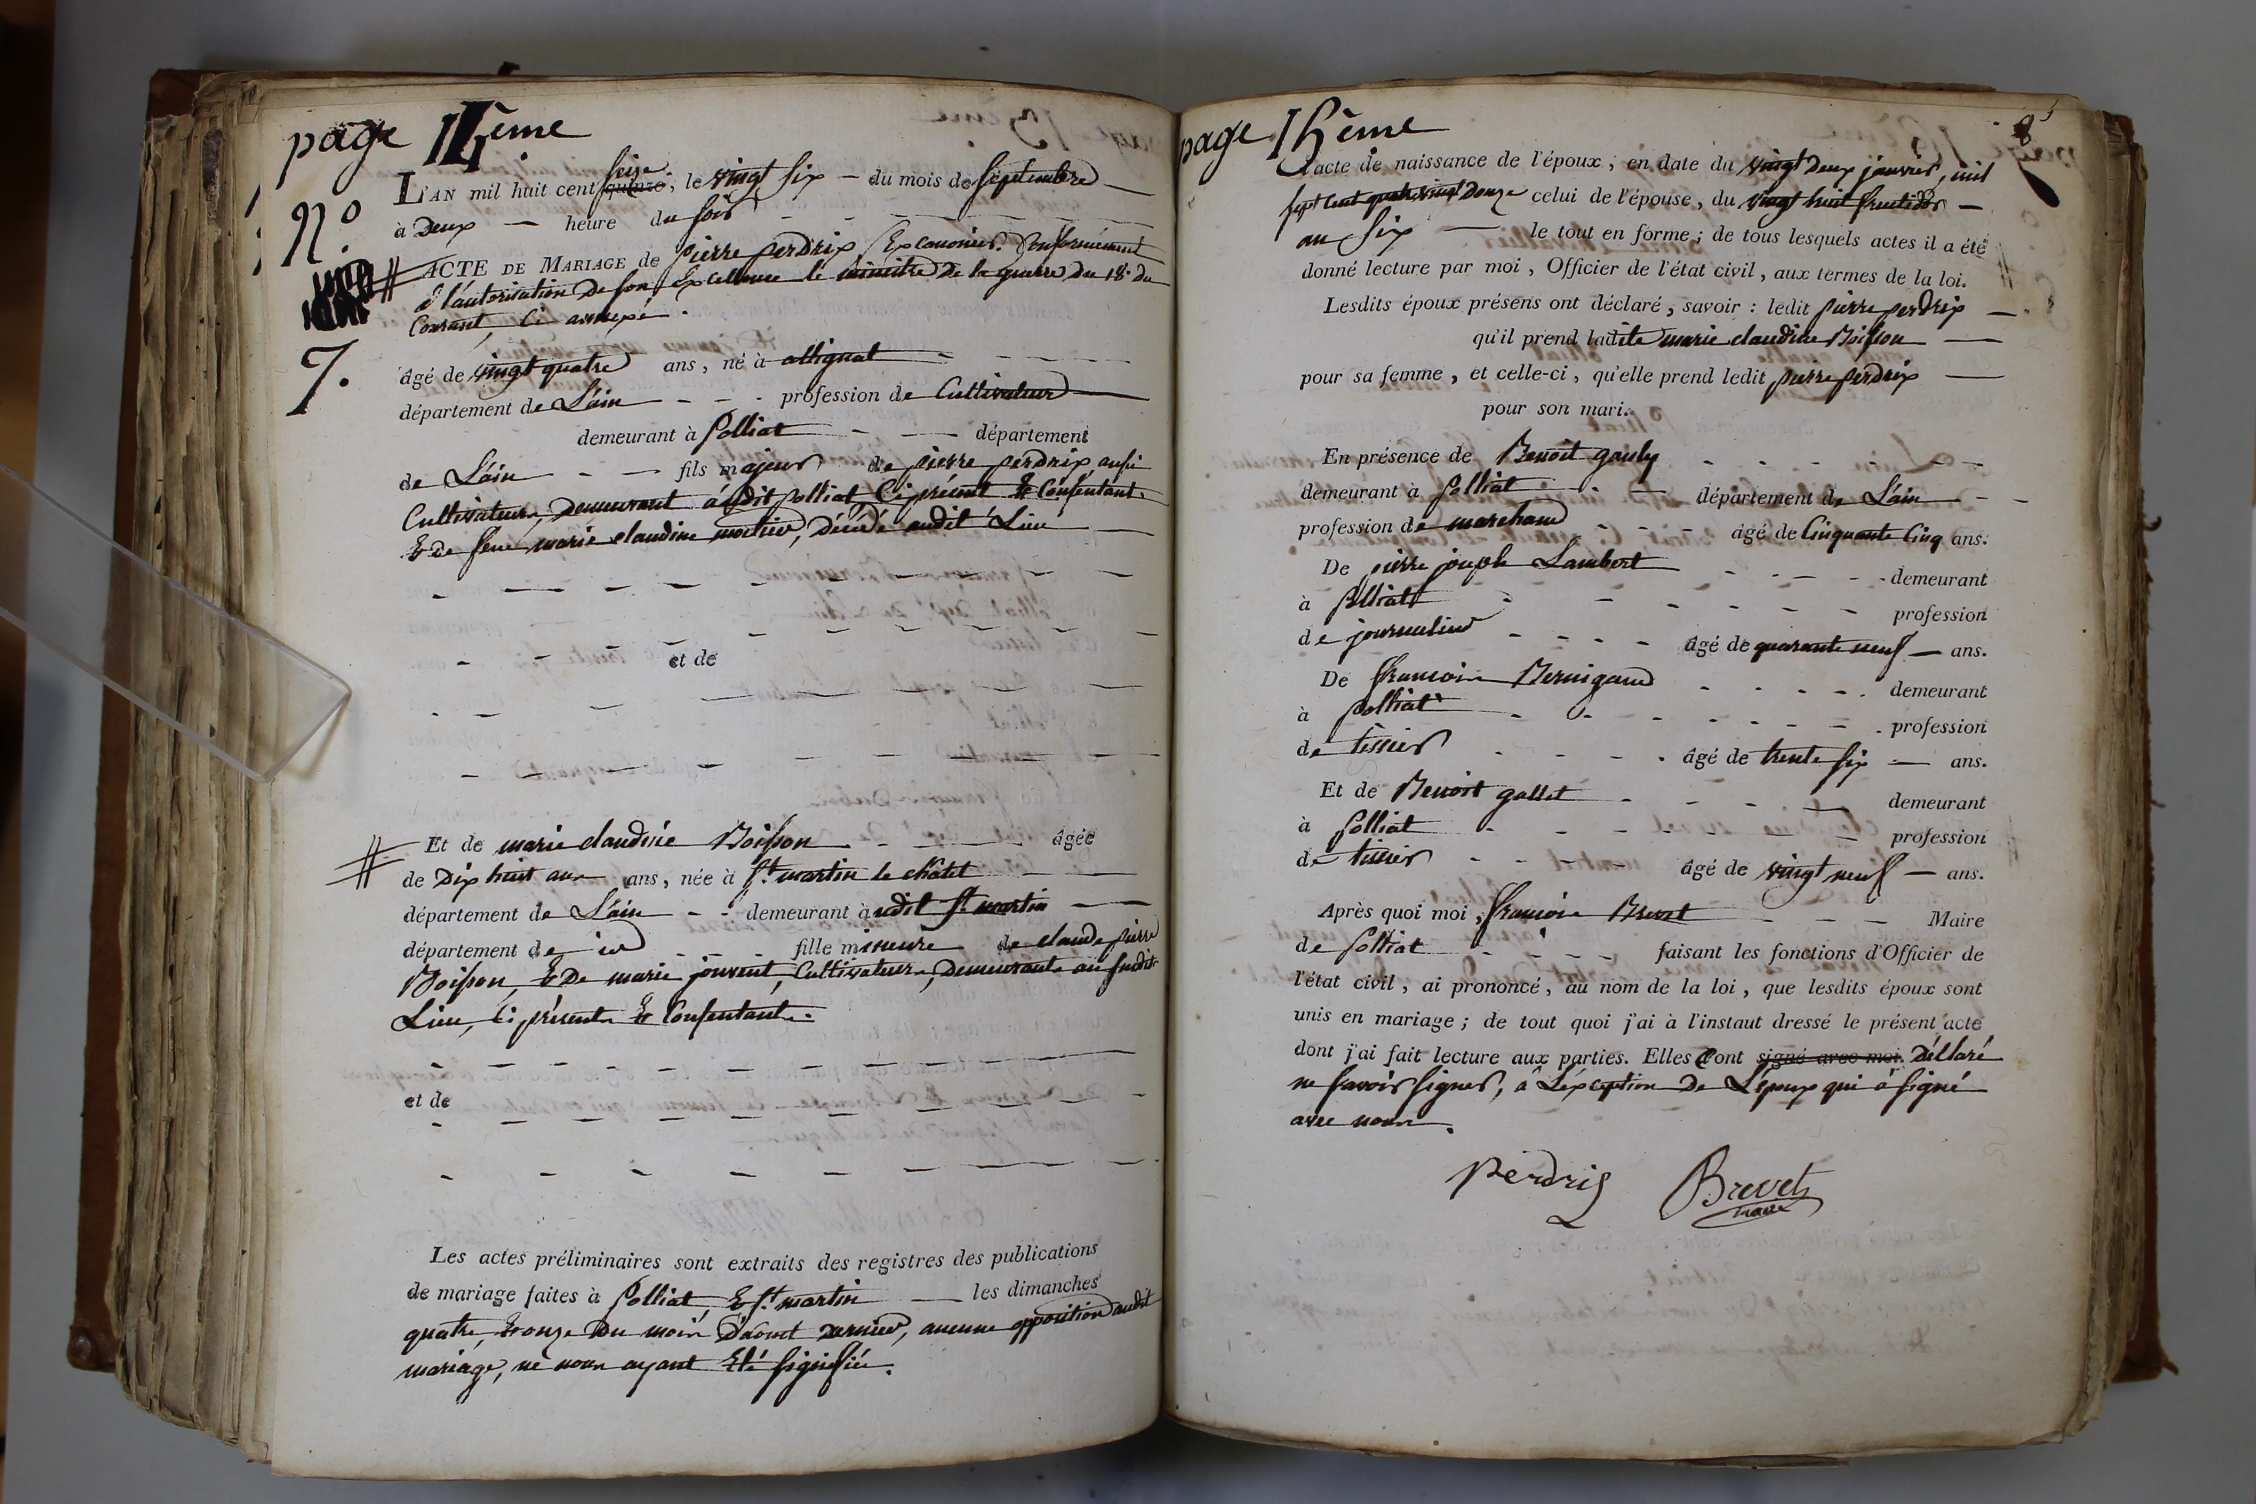 page 14ème
L'AN mil huit cent quinze seize, le vingt six — du mois de Septembre —
à Deux — heure du Soir
N.º
ACTE DE MARIAGE de pierre perdrix, Excanonier. Conformément
à l'autorisation de son Excellence le ministre de la guerre du 18. du
Courant, Ci annexé.
7.
âgé de vingt quatre ans, né à attignat
département de L'ain — profession de Cultivateur
demeurant à Polliat — département
de L'ain — fils majeur de pierre perdrix, aussi
Cultivateur, Demeurant audit polliat, Ci présent & Consentant.
& de feue marie claudine moitier, Décédé audit Lieu
et de
Et de marie claudine Boisson — âgée
de Dix huit ans ans, née à St. martin le châtel
département de L'ain — demeurant audit St. martin
département de id fille mineure de claude pierre
Boisson, & De marie jouvent, Cultivateurs, Demeurants au susdit
Lieu, Ci présents & Consentants.
et de
Les actes préliminaires sont extraits des registres des publications
de mariage faites à Polliat, & St. martin — les dimanches
quatre, & onze Du mois D'aout dernier, aucune opposition audit
mariage, ne nous ayant Eté signifiée.
page 15ème
8
L'acte de naissance de l'époux, en date du vingt Deux janvier, mil
sept cent quatre vingt Douze celui de l'épouse, du vingt huit fructidor —
an Six — le tout en forme; de tous lesquels actes il a été
donné lecture par moi, Officier de l'état civil, aux termes de la loi.
Lesdits époux présens ont déclaré, savoir : ledit pierre perdrix —
qu'il prend ladite marie claudine Boisson —
pour sa femme, et celle-ci, qu'elle prend ledit pierre perdrix —
pour son mari.
En présence de Benoit gauly
demeurant à Polliat — département de L'ain
profession de marchand âgé de Cinquante Cinq ans.
De pierre joseph Lambert demeurant
à polliat profession
de journalier âgé de quarante neuf — ans.
De francois Bernigaud demeurant
à polliat profession
de tissier âgé de trente six — ans.
Et de Benoit gallet demeurant
à Polliat profession
de tissier âgé de vingt neuf — ans.
Après quoi moi, francois Brevet Maire
de Polliat faisant les fonctions d'Officier de
l'état civil, ai prononcé, au nom de la loi, que lesdits époux sont
unis en mariage; de tout quoi j'ai à l'instaut dressé le présent acte
dont j'ai fait lecture aux parties. Elles ont signé avec moi. Déclaré
ne savoir signer, à L'éxception De L'époux qui a signé
avec nous.
Perdrix Brevet
maire